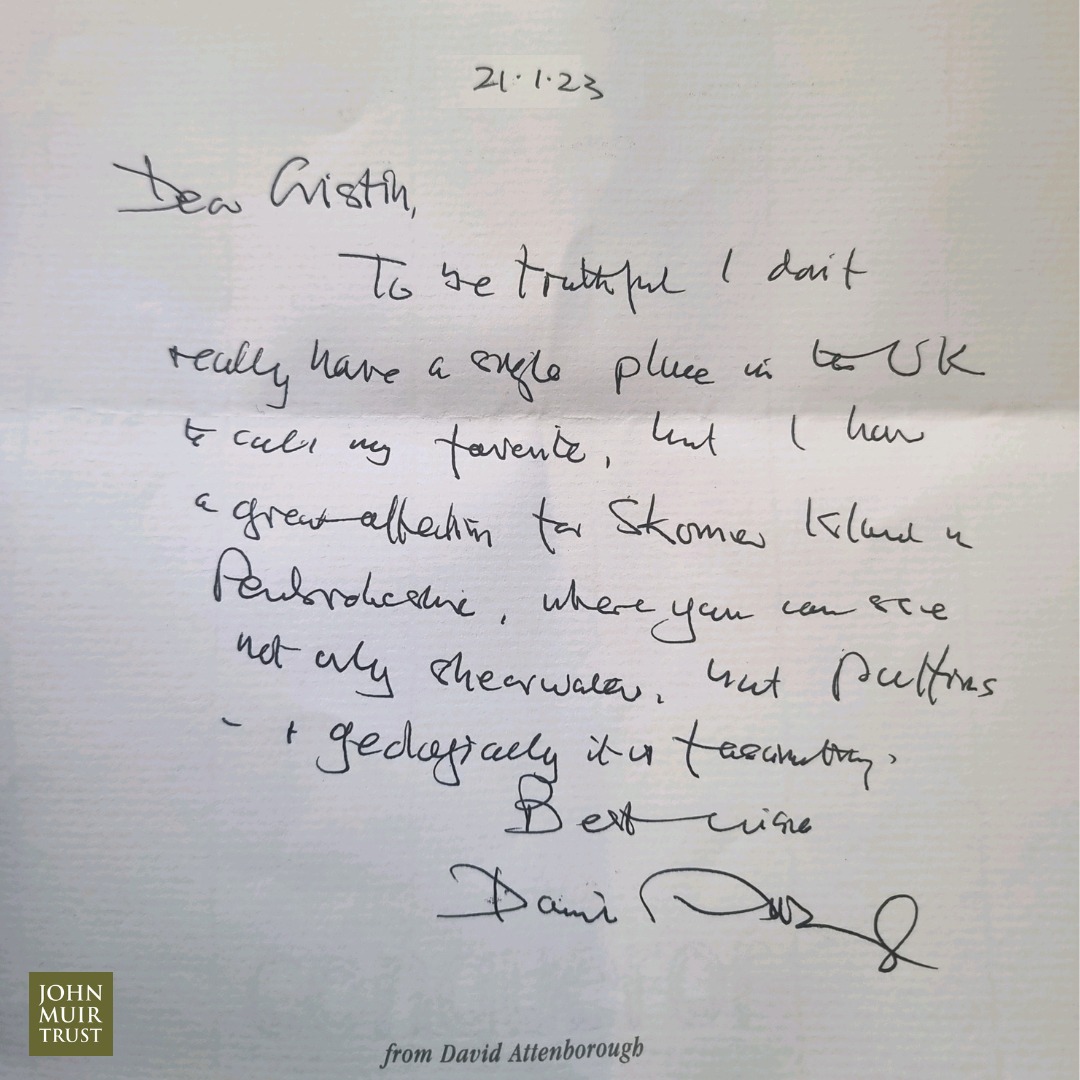 21.1.23
Dear Cristin,
To be truthful I don't
really have a single place in the UK
to call my favourite, but I have
a great affection for Skomer Island in
Pembrokeshire, where you can see
not only shearwaters, but puffins
- + geologically it is fascinating.
Best wishes
David Attenborough
JOHN
MUIR
TRUST
from David Attenborough